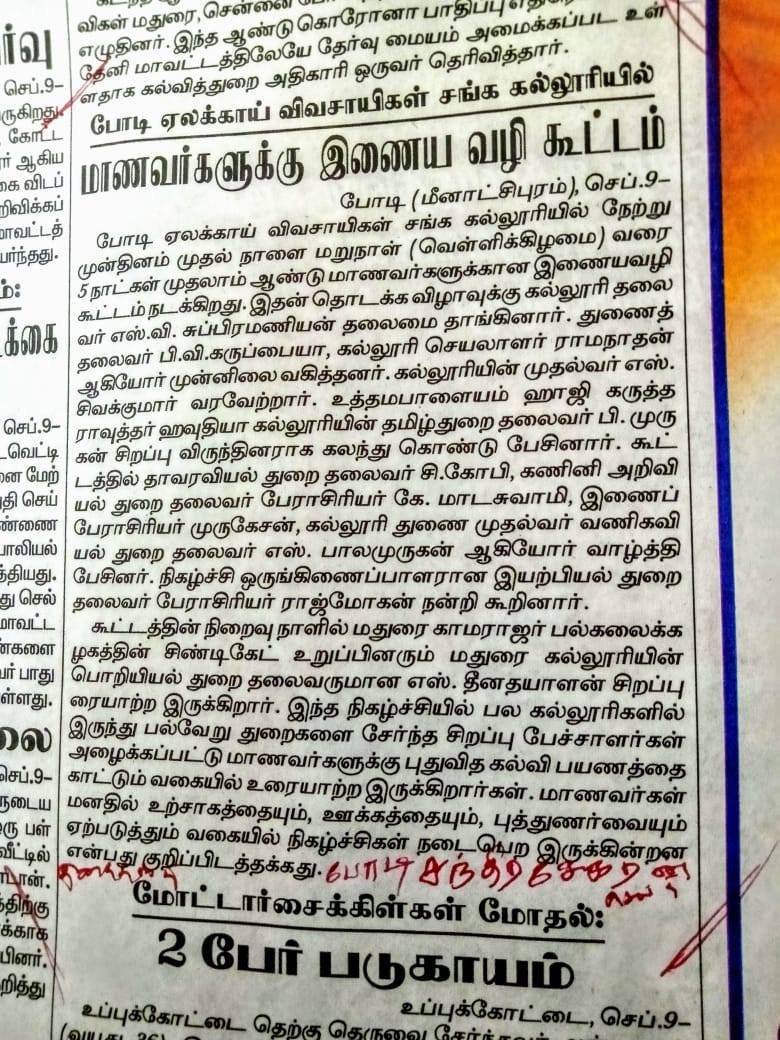 விகள் மதுரை, சென்னை
எழுதினர். இந்த ஆண்டு கொரோனா பாதிப்பு
தேனி மாவட்டத்திலேயே தேர்வு மையம் அமைக்கப்பட உள்
ளதாக கல்வித்துறை அதிகாரி ஒருவர் தெரிவித்தார்.
போடி ஏலக்காய் விவசாயிகள் சங்க கல்லூரியில்
மாணவர்களுக்கு இணைய வழி கூட்டம்
போடி (மீனாட்சிபுரம்), செப்.9–
போடி ஏலக்காய் விவசாயிகள் சங்க கல்லூரியில் நேற்று
முன்தினம் முதல் நாளை மறுநாள் (வெள்ளிக்கிழமை) வரை
5 நாட்கள் முதலாம் ஆண்டு மாணவர்களுக்கான இணையவழி
கூட்டம் நடக்கிறது. இதன் தொடக்க விழாவுக்கு கல்லூரி தலை
வர் எஸ்.வி. சுப்பிரமணியன் தலைமை தாங்கினார். துணைத்
தலைவர் பி.வி.கருப்பையா, கல்லூரி செயலாளர் ராமநாதன்
ஆகியோர் முன்னிலை வகித்தனர். கல்லூரியின் முதல்வர் எஸ்.
சிவக்குமார் வரவேற்றார். உத்தமபாளையம் ஹாஜி கருத்த
ராவுத்தர் ஹவுதியா கல்லூரியின் தமிழ்துறை தலைவர் பி. முரு
கன் சிறப்பு விருந்தினராக கலந்து கொண்டு பேசினார். கூட்
டத்தில் தாவரவியல் துறை தலைவர் சி.கோபி, கணினி அறிவி
யல் துறை தலைவர் பேராசிரியர் கே. மாடசுவாமி, இணைப்
பேராசிரியர் முருகேசன், கல்லூரி துணை முதல்வர் வணிகவி
யல் துறை தலைவர் எஸ். பாலமுருகன் ஆகியோர் வாழ்த்தி
பேசினர். நிகழ்ச்சி ஒருங்கிணைப்பாளரான இயற்பியல் துறை
தலைவர் பேராசிரியர் ராஜ்மோகன் நன்றி கூறினார்.
கூட்டத்தின் நிறைவு நாளில் மதுரை காமராஜர் பல்கலைக்க
ழகத்தின் சிண்டிகேட் உறுப்பினரும் மதுரை கல்லூரியின்
பொறியியல் துறை தலைவருமான எஸ். தீனதயாளன் சிறப்பு
ரையாற்ற இருக்கிறார். இந்த நிகழ்ச்சியில் பல கல்லூரிகளில்
இருந்து பல்வேறு துறைகளை சேர்ந்த சிறப்பு பேச்சாளர்கள்
அழைக்கப்பட்டு மாணவர்களுக்கு புதுவித கல்வி பயணத்தை
காட்டும் வகையில் உரையாற்ற இருக்கிறார்கள். மாணவர்கள்
மனதில் உற்சாகத்தையும், ஊக்கத்தையும், புத்துணர்வையும்
ஏற்படுத்தும் வகையில் நிகழ்ச்சிகள் நடைபெற இருக்கின்றன
என்பது குறிப்பிடத்தக்கது.
போடி சந்திரசேகரன்
மோட்டார்சைக்கிள்கள் மோதல்:
2 பேர் படுகாயம்
உப்புக்கோட்டை, செப்.9–
உப்புக்கோட்டை தெற்கு தெருவை சேர்ந்தவர்